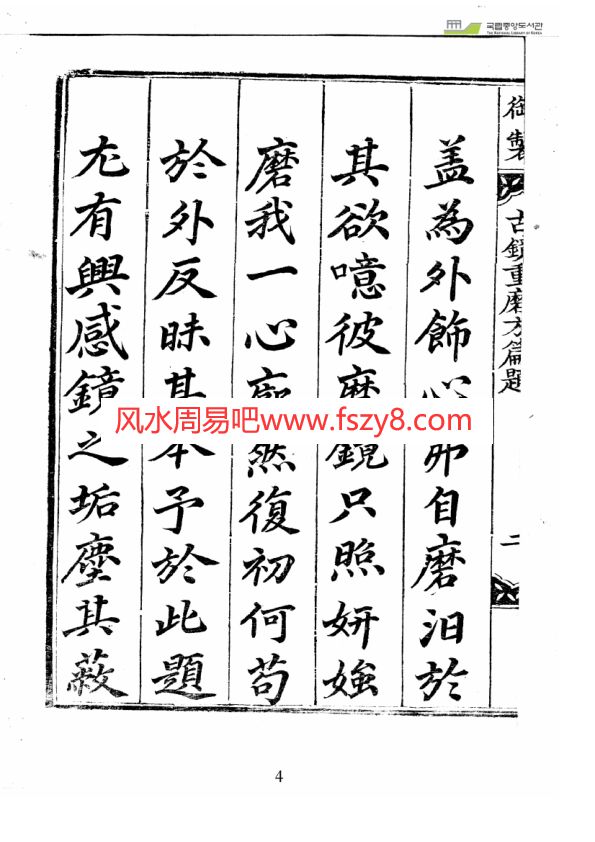 국립중앙도서관
THE NATIONAL LIBRARY OF KOREA
御製
古鏡重磨方篇題
二
盖為外飾心自磨汩於
其欲噫彼磨鏡只照妍媸
磨我一心廓然復初何苟
於外反昧其本予於此題
尤有興感鏡之垢塵其蔽
风水周易吧www.fszy8.com
4